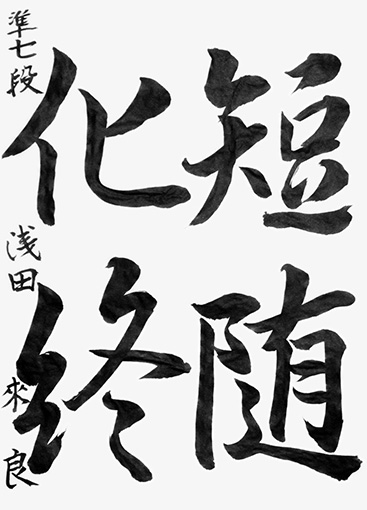 短随
化終
準七段 浅田來良